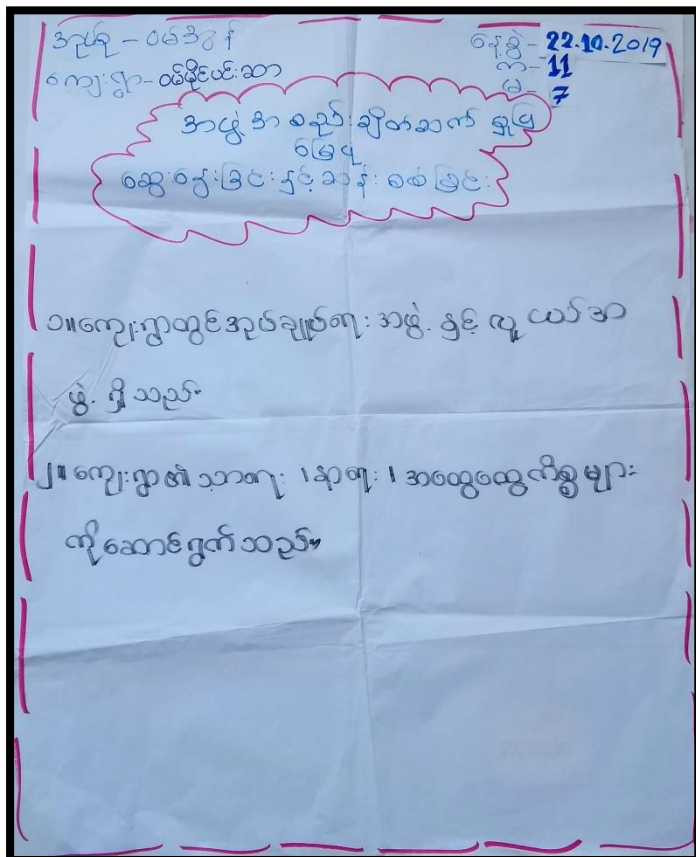 အုပ်စု - ဝမ်အွန်
ကျေးရွာ - ဝမ်မိုင်ပင်းဆာ
နေ့စွဲ - 22.10.2019
ကျ - 11
မ - 7
အဖွဲ့အစည်းချိတ်ဆက်မှုပြ
မြေပုံ
ဆွေးနွေးခြင်းနှင့်ဆန်းစစ်ခြင်း
၁။ ကျေးရွာတွင်အုပ်ချုပ်ရေးအဖွဲ့ နှင့် လူငယ်အ
ဖွဲ့ ရှိသည်။
၂။ ကျေးရွာ၏ သာရေး၊ နာရေး၊ အထွေထွေကိစ္စများ
ကိုဆောင်ရွက်သည်။